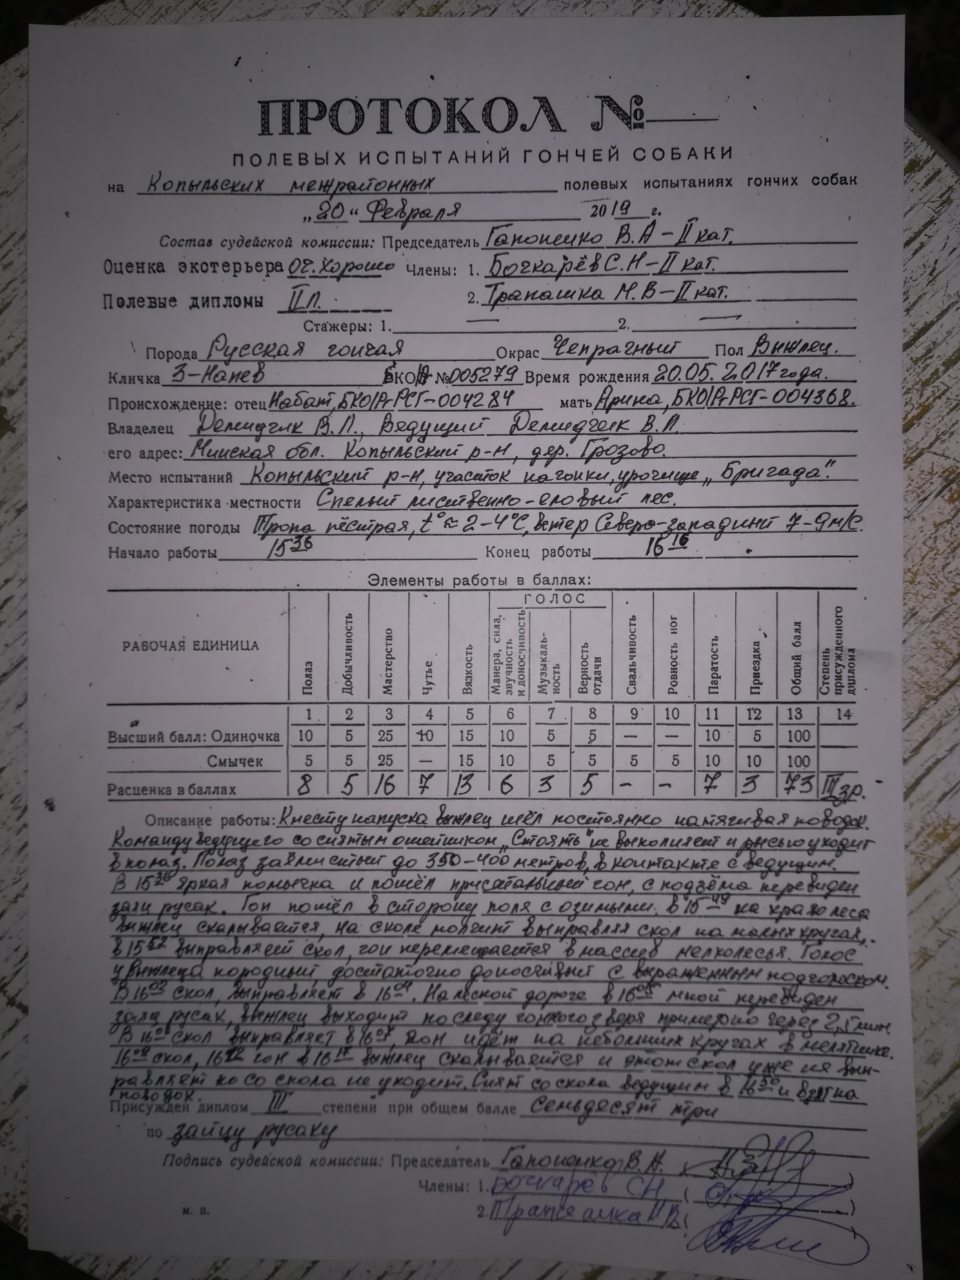 ПРОТОКОЛ №
ПОЛЕВЫХ ИСПЫТАНИЙ ГОНЧЕЙ СОБАКИ
на Копыльских межрайонных полевых испытаниях гончих собак
„20“ Февраля 2019 г.
Состав судейской комиссии: Председатель Гапоненко В.А – II кат.
Оценка экотерьера Оч. Хорошо Члены: 1. Бочкарёв С.Н – II кат.
Полевые дипломы II п. 2. Трапашка М.В – II кат.
Стажеры: 1. — 2. —
Порода Русская гончая Окрас Чепрачный Пол Выжлец.
Кличка З-Напев БКО № 005279 Время рождения 20.05.2017 года.
Происхождение: отец Набат, БКО РГ-004284 мать Арина, БКО РГ-004368.
Владелец Демидчик В.Л., Ведущий Демидчик В.Л.
его адрес: Минская обл. Копыльский р-н, дер. Грозово.
Место испытаний Копыльский р-н, участок нагонки, урочище „Бригада“.
Характеристика местности Спелый лиственно-еловый лес.
Состояние погоды Тропа пёстрая, t° ≈ 2-4°С, ветер Северо-западный 7-9 м/с.
Начало работы 15 36 Конец работы 16 16
Элементы работы в баллах:
ГОЛОС
РАБОЧАЯ ЕДИНИЦА Полаз Добычливость Мастерство Чутье Вязкость Манера, сила, звучность и доносчивость Музыкальность Верность отдачи Свальчивость Ровность ног Паратость Приездка Общий балл Степень присужденного диплома
1 2 3 4 5 6 7 8 9 10 11 12 13 14
Высший балл: Одиночка 10 5 25 10 15 10 5 5 — — 10 5 100
Смычек 5 5 25 — 15 10 5 5 5 5 10 10 100
Расценка в баллах 8 5 16 7 13 6 3 5 – – 7 3 73 III
Описание работы: К месту напуска выжлец шёл постоянно натягивая поводок.
Команду ведущего со снятым ошейником „Стоять“ не выполняет и рысью уходит
в полаз. Полаз до 350-400 метров, в контакте с ведущим.
В 15 36 яркая помычка и пошёл гон, с подъёма перевиден
заяц русак. Гон пошёл в сторону поля с озимыми. в 15 49 на краю леса
выжлец скалывается, на сколе молчит выправляя скол на малых кругах,
в 15 52 выправляет скол, гон перемещается в массив мелколесья. Голос
у выжлеца породный достаточно доносчивый с выраженным подголоском.
В 16 03 скол, выправляет в 16 04. На лесной дороге в 16 05 мной перевиден
заяц русак, выжлец выходит по следу гонного зверя примерно через 2,5 мин
В 16 скол выправляет в 16 гон идёт на небольших кругах в мелятнике.
16 скол, 16 12 гон в 16 выжлец скалывается и этот скол уже не вып-
равляет но со скола не уходит. Снят со скола ведущим в 16 и взят на
поводок.
Присужден диплом III степени при общем балле Семьдесят три
по зайцу русаку
Подпись судейской комиссии: Председатель Гапоненко В.А.
Члены: 1. Бочкарёв С.Н. ( )
2. Трапашка М.В. (
м. п.